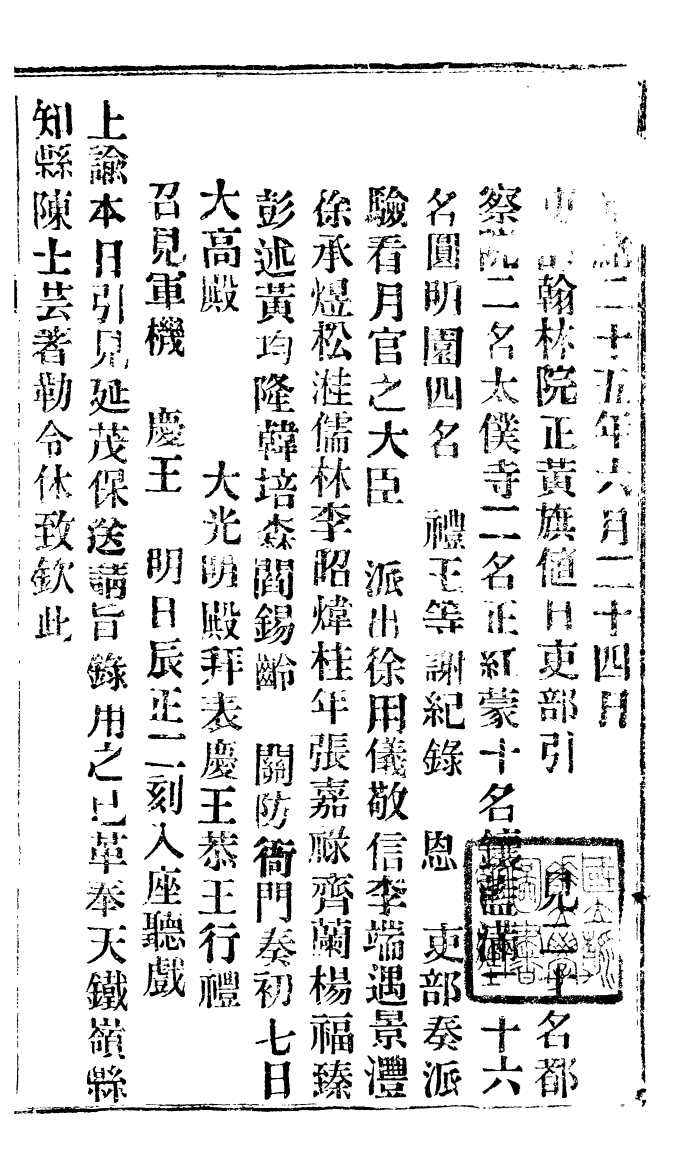 光緒二十五年六月二十四日
翰林院正黃旗値日吏部引　見二十名都
察院二名太僕寺二名正紅蒙十名鑲藍滿　十六
名圓明園四名　禮王等謝紀錄　恩　吏部奏派
驗看月官之大臣　派出徐用儀敬信李端遇景灃
徐承煜松溎儒林李昭煒桂年張嘉祿齊蘭楊福臻
彭述黃均隆韓培森閻錫齡　關防衙門奏初七日
大高殿　大光明殿拜表慶王恭王行禮
召見軍機　慶王　明日辰正二刻入座聽戲
上諭本日引見延茂保送請旨錄用之已革奉天鐵嶺縣
知縣陳士芸著勒令休致欽此